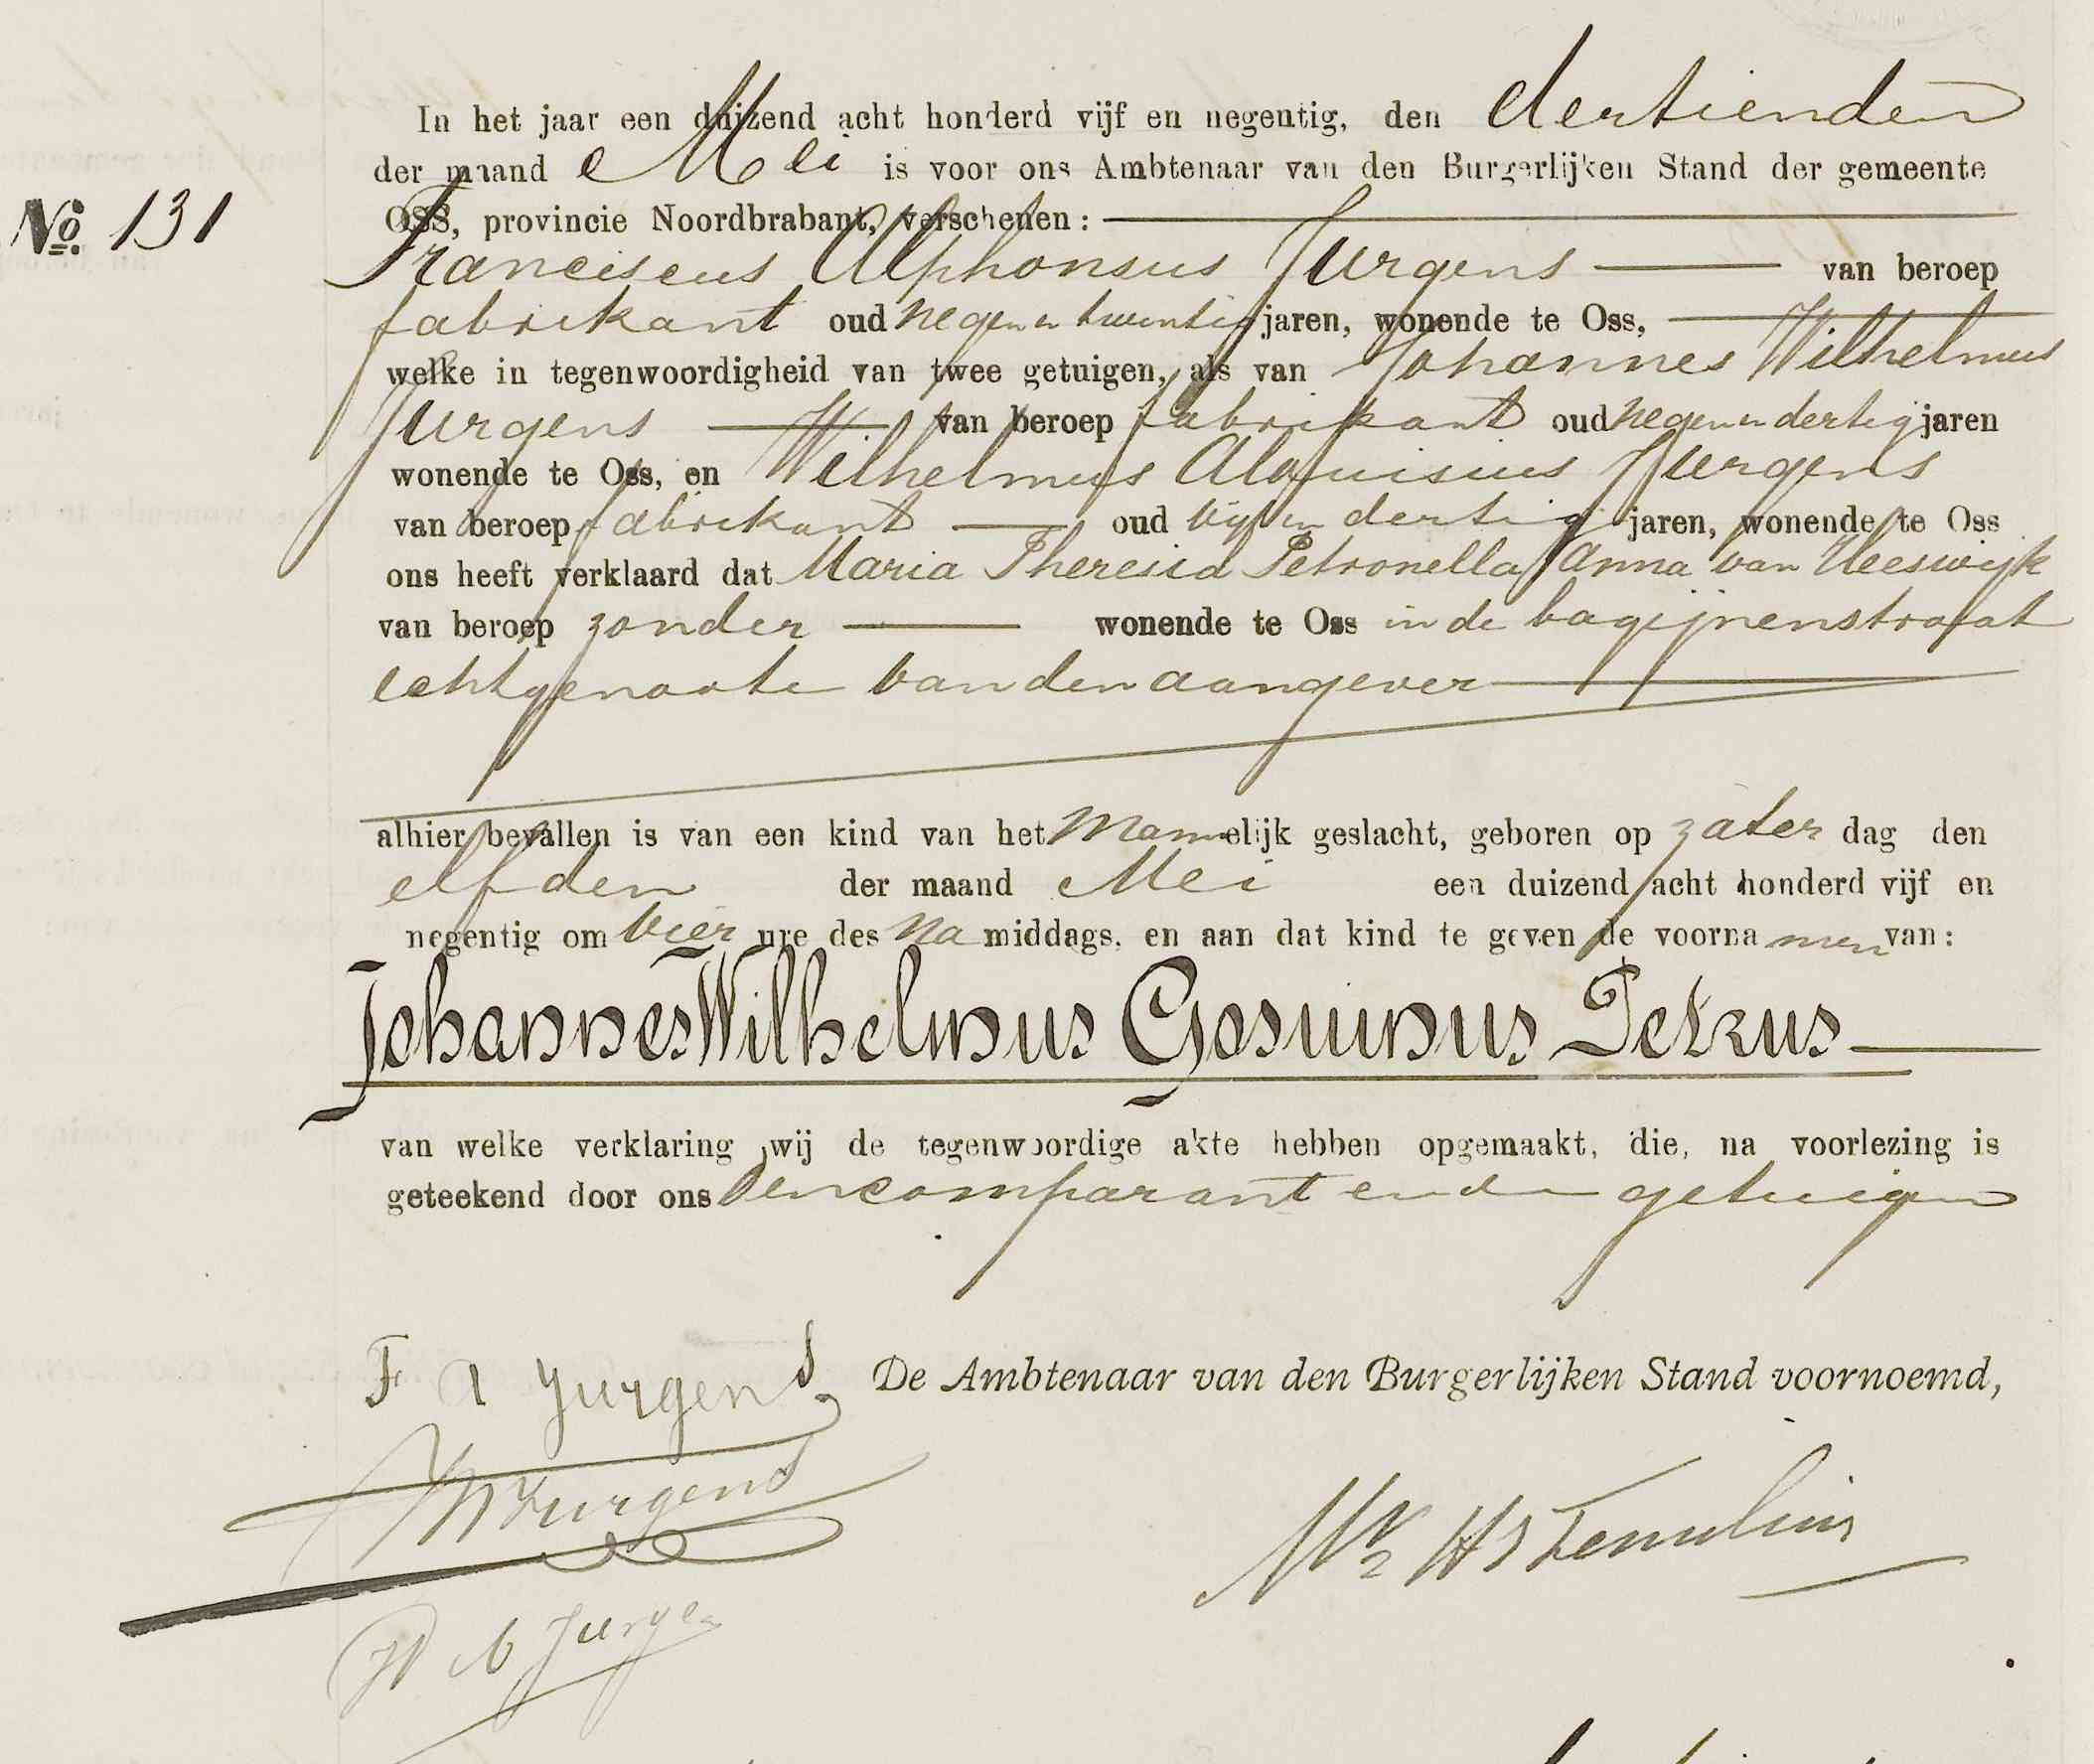 In het jaar een duizend acht honderd vijf en negentig, den dertienden
der maand Mei is voor ons Ambtenaar van den Burgerlijken Stand der gemeente
No. 131
OSS, provincie Noordbrabant, verschenen:
Franciscus Alphonsus Jurgens van beroep
fabrikant oud negen en twintig jaren, wonende te Oss,
welke in tegenwoordigheid van twee getuigen, als van Johannes Wilhelmus
Jurgens van beroep fabrikant oud negen en dertig jaren
wonende te Oss, en Wilhelmus Aloijsius Jurgens
van beroep fabrikant oud vijf en dertig jaren, wonende te Oss
ons heeft verklaard dat Maria Theresia Petronella Anna van Heeswijk
van beroep zonder wonende te Oss in de bagijnenstraat
echtgenoote van den aangever
alhier bevallen is van een kind van het Mannelijk geslacht, geboren op zaterdag den
elfden der maand Mei een duizend acht honderd vijf en
negentig om vier ure des na middags, en aan dat kind te geven de voornamen van:
Johannes Wilhelmus Gosuinus Petrus
van welke verklaring wij de tegenwoordige akte hebben opgemaakt, die, na voorlezing is
geteekend door ons den comparant en de getuigen
F A Jurgens De Ambtenaar van den Burgerlijken Stand voornoemd,
Jurgens
Jurgens